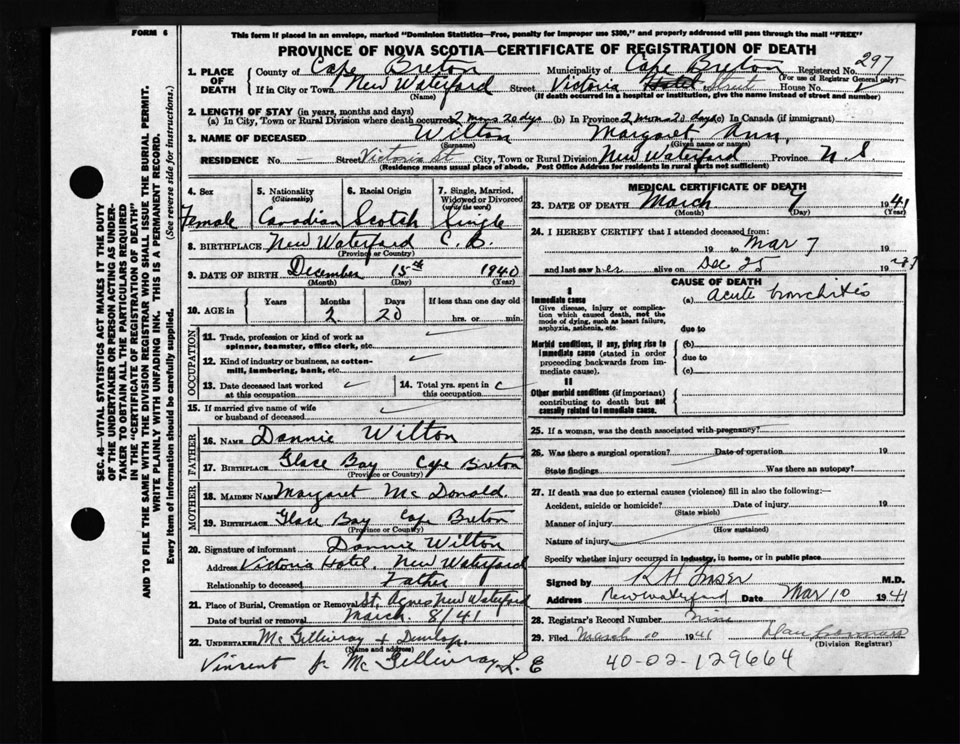 FORM 6
This form if placed in an envelope, marked "Dominion Statistics—Free, penalty for improper use $300," and properly addressed will pass through the mail "FREE"
PROVINCE OF NOVA SCOTIA—CERTIFICATE OF REGISTRATION OF DEATH
297
1. PLACE OF DEATH County of Cape Breton Municipality of Cape Breton Registered No.
(For use of Registrar General only)
If in City or Town New Waterford Street Victoria Hotel Street House No.
(Name) (If death occurred in a hospital or institution, give the name instead of street and number)
2. LENGTH OF STAY (in years, months and days)
(a) In City, Town or Rural Division where death occurred 2 mons 20 dys (b) In Province 2 mons 20 days (c) In Canada (if immigrant)
3. NAME OF DECEASED Wilton Margaret Ann
(Surname) (Given name or names)
RESIDENCE No. — Street Victoria St City, Town or Rural Division New Waterford Province N S.
(Residence means usual place of abode. Post Office Address for residents in rural parts not sufficient)
4. Sex Female
5. Nationality (Citizenship) Canadian
6. Racial Origin Scotch
7. Single, Married, Widowed or Divorced (write the word) Single
8. BIRTHPLACE New Waterford C. B.
(Province or Country)
9. DATE OF BIRTH December 15th 1940
(Month) (Day) (Year)
10. AGE in Years Months 2 Days 20 If less than one day old hrs. or min.
OCCUPATION
11. Trade, profession or kind of work as spinner, teamster, office clerk, etc.
12. Kind of industry or business, as cotton-mill, lumbering, bank, etc.
13. Date deceased last worked at this occupation
14. Total yrs. spent in this occupation
15. If married give name of wife or husband of deceased
FATHER
16. NAME Dannie Wilton
17. BIRTHPLACE Glace Bay Cape Breton
(Province or Country)
MOTHER
18. MAIDEN NAME Margaret McDonald.
19. BIRTHPLACE Glace Bay Cape Breton
(Province or Country)
20. Signature of informant Dannie Wilton
Address Victoria Hotel, New Waterford
Relationship to deceased Father
21. Place of Burial, Cremation or Removal St. Agnes New Waterford
Date of burial or removal March. 8/41
22. UNDERTAKER McGillivray + Dunlop.
(Name and address)
Vincent J. McGillivray L. E
MEDICAL CERTIFICATE OF DEATH
23. DATE OF DEATH March 7 1941
(Month) (Day) (Year)
24. I HEREBY CERTIFY that I attended deceased from:
19 to Mar 7 19
and last saw her alive on Dec 25 19
CAUSE OF DEATH
I
Immediate cause
Give disease, injury or complication which caused death, not the mode of dying, such as heart failure, asphyxia, asthenia, etc.
(a) acute bronchitis
due to
Morbid conditions, if any, giving rise to immediate cause (stated in order proceeding backwards from immediate cause).
(b)
due to
(c)
II
Other morbid conditions (if important) contributing to death but not causally related to immediate cause.
25. If a woman, was the death associated with pregnancy?
26. Was there a surgical operation? Date of operation 19
State findings Was there an autopsy?
27. If death was due to external causes (violence) fill in also the following:—
Accident, suicide or homicide? Date of injury 19
(State which)
Manner of injury
(How sustained)
Nature of injury
Specify whether injury occurred in industry, in home, or in public place
Signed by M.D.
Address New Waterford Date Mar 10 1941
28. Registrar's Record Number nine
29. Filed March 10 1941 Dan
(Division Registrar)
40-02-129664
SEC. 46—VITAL STATISTICS ACT MAKES IT THE DUTY
OF THE UNDERTAKER OR PERSON ACTING AS UNDER-
TAKER TO OBTAIN ALL THE PARTICULARS REQUIRED
IN THE "CERTIFICATE OF REGISTRATION OF DEATH"
AND TO FILE THE SAME WITH THE DIVISION REGISTRAR WHO SHALL ISSUE THE BURIAL PERMIT.
WRITE PLAINLY WITH UNFADING INK. THIS IS A PERMANENT RECORD.
Every item of information should be carefully supplied. (See reverse side for instructions.)